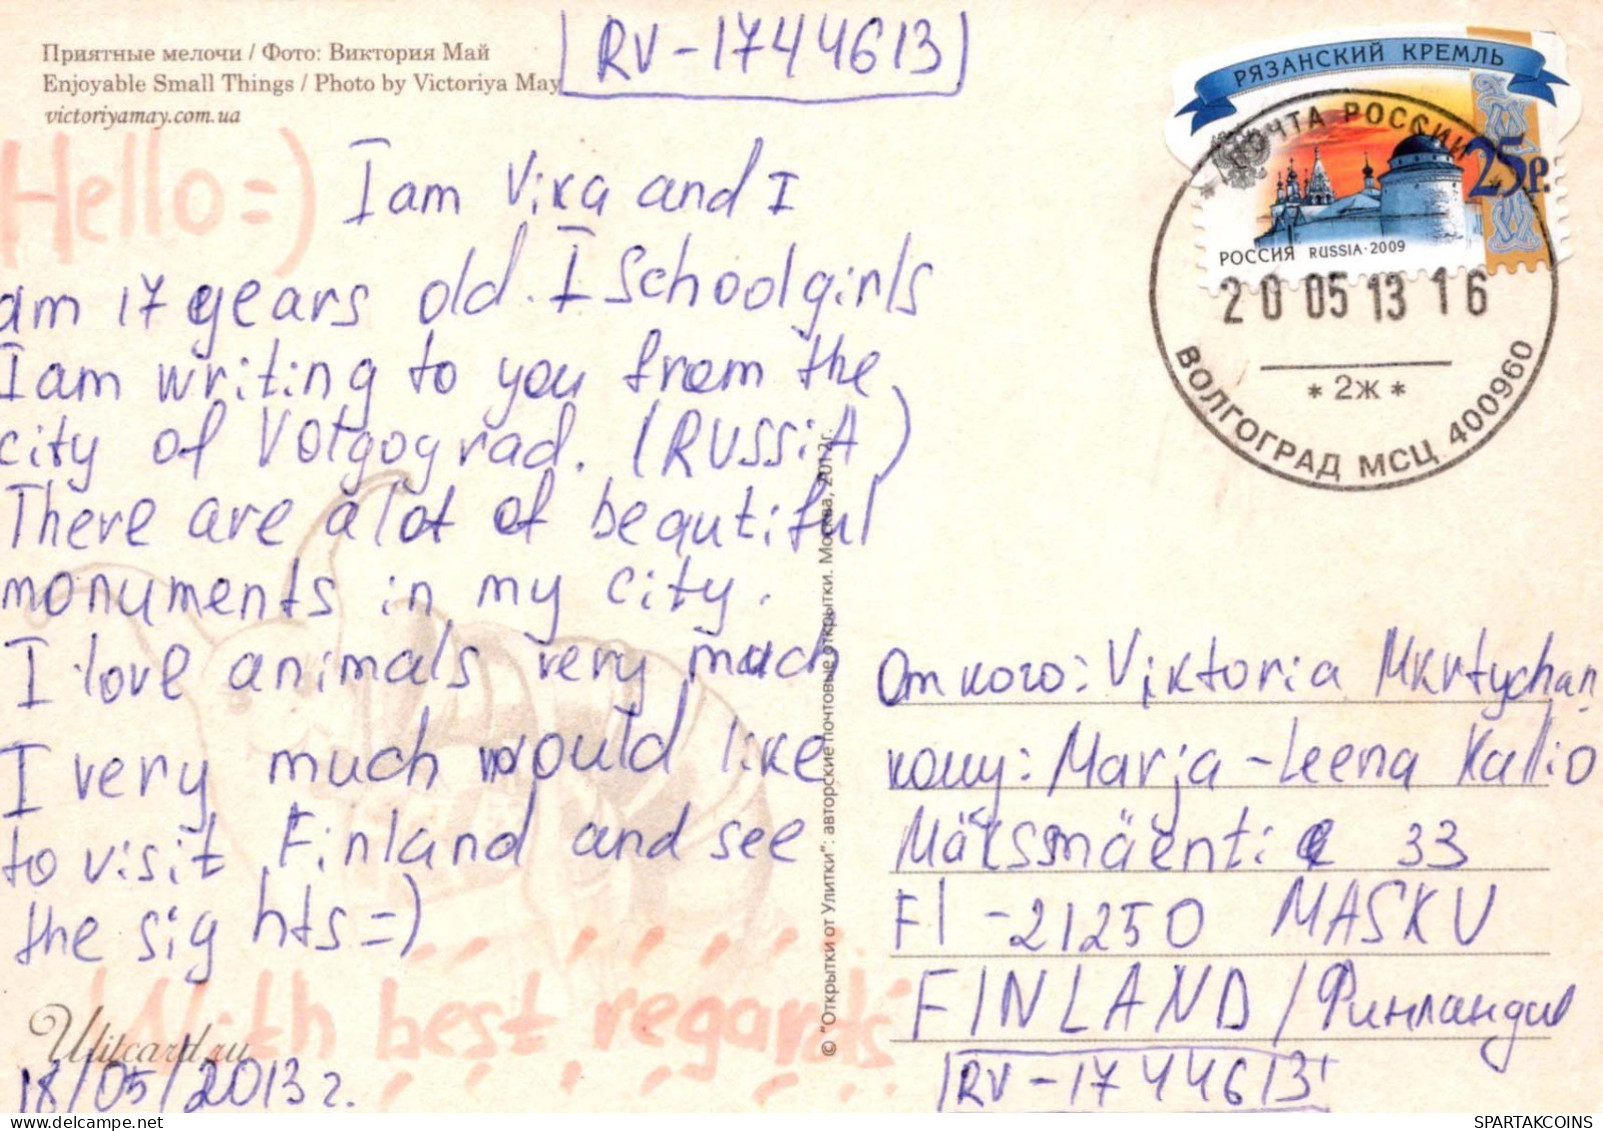 RV-1744613
Приятные мелочи / Фото: Виктория Май
Enjoyable Small Things / Photo by Victoriya May
victoriyamay.com.ua
Hello =)
I am Vika and I
am 17 years old. I schoolgirls
I am writing to you from the
city of Votgograd. (RUSSiA)
There are a lot of beautiful
monuments in my city.
I love animals very much
I very much would like
to visit Finland and see
the sights =)
With best regards
Ulitcard.ru
18/05/2013 г.
© "Открытки от Улитки": авторские почтовые открытки. Москва, 2012г.
РЯЗАНСКИЙ КРЕМЛЬ
25р.
РОССИЯ RUSSIA·2009
ПОЧТА РОССИИ
20 05 13 16
* 2Ж *
ВОЛГОГРАД МСЦ 400960
От кого: Viktoria Mkrtychan
кому: Marja-Leena Kallio
33
FI-21250 MASKU
FINLAND / Финландия
RV-1744613
SPARTAKCOINS